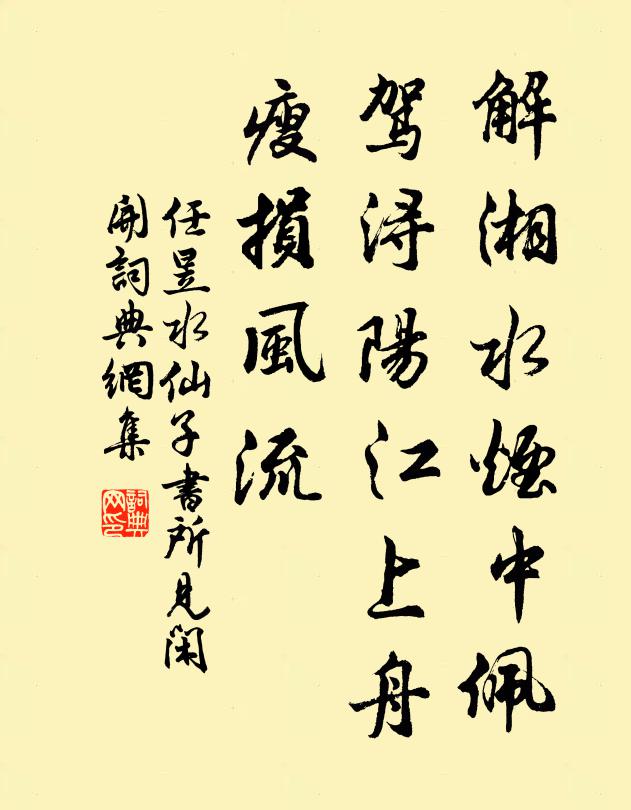 解湘水煙中佩
駕潯陽江上舟
瘦損風流
任昱水仙子書所見閑
開詞典網集
詞典網印